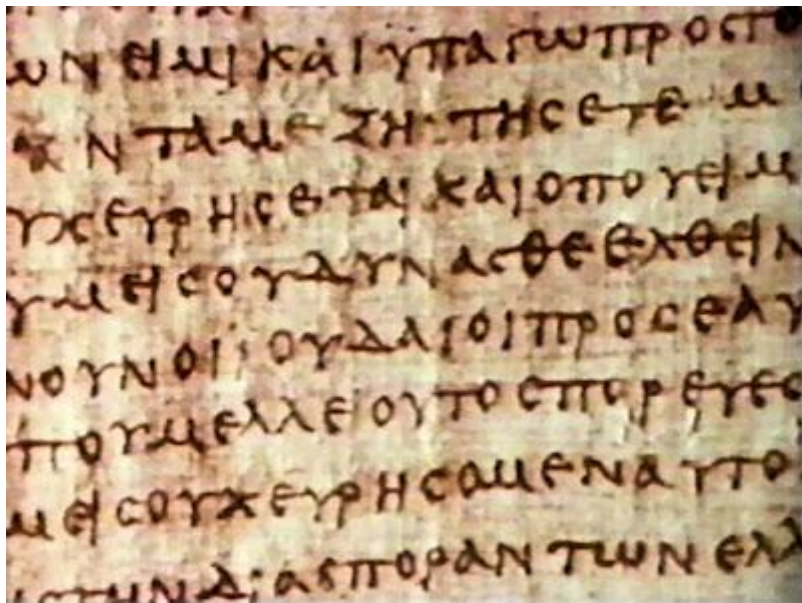 ωΝΕΙΜΙΚΑΙΥΠΑΓωΠΡΟϹΤΟ
ΑΝΤΑΜΕ ΖΗΤΗϹΕΤΕ Μ
ΥΧΕΥΡΗϹΕΤΑΙ ΚΑΙΟΠΟΥΕΙΜ
ΥΜΕΙϹΟΥΔΥΝΑϹΘΕΕΛΘΕΙΝ
ΝΟΥΝΟΙΪΟΥΔΑΙΟΙΠΡΟϹΕΑΥ
ΠΟΥΜΕΛΛΕΙΟΥΤΟϹΠΟΡΕΥΕϹ
ΜΕΙϹΟΥΧΕΥΡΗϹΟΜΕΝΑΥΤΟ
ΙϹΤΗΝΔΙΑϹΠΟΡΑΝΤωΝΕΛΛ